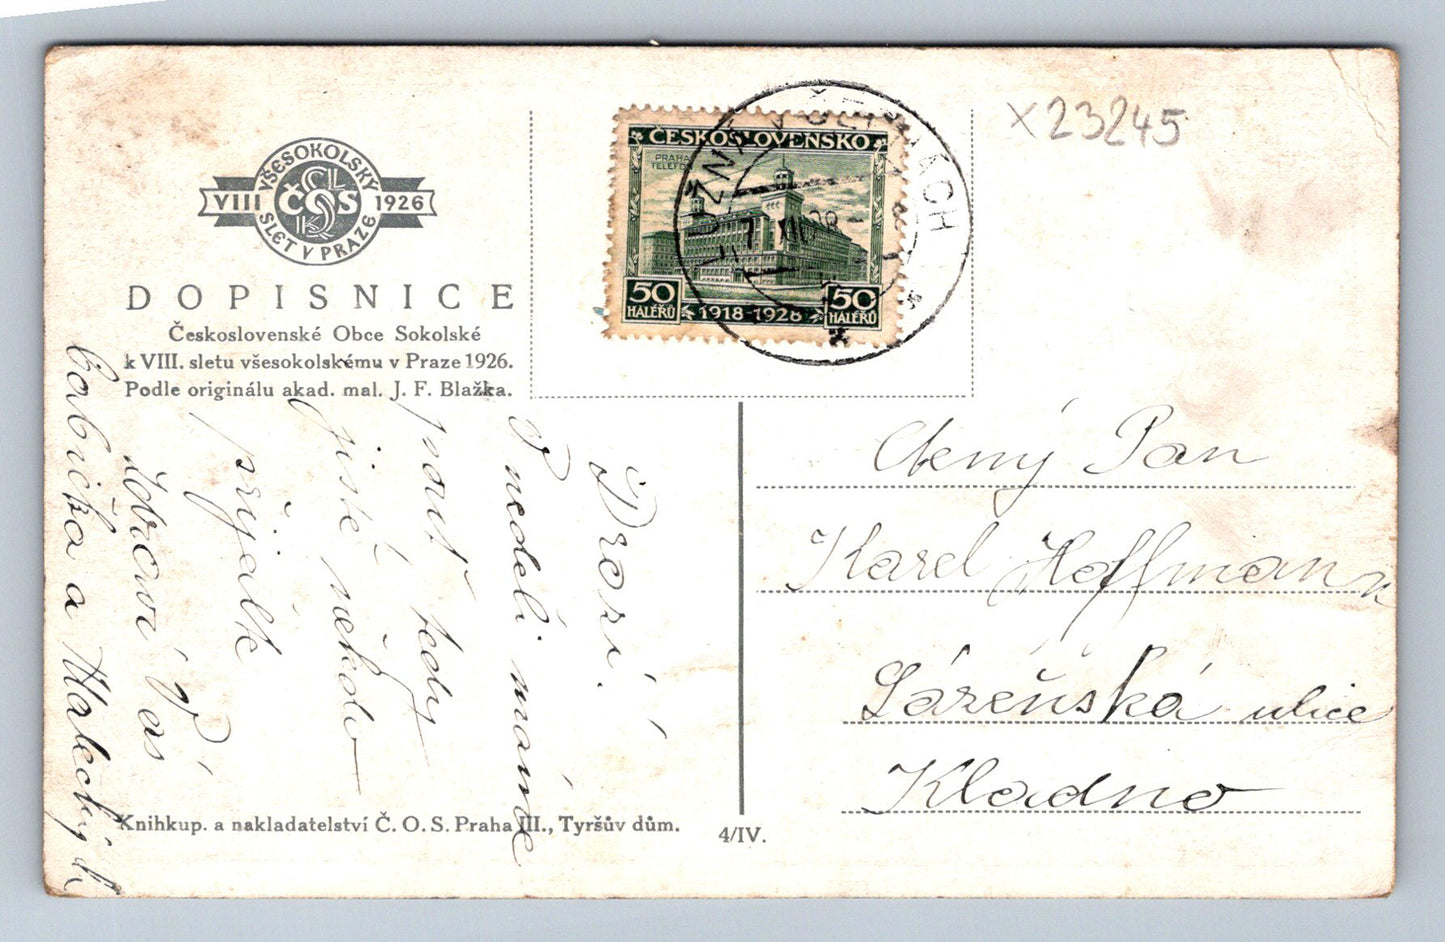 X23245
VŠESOKOLSKÝ
VIII ČOS 1926
SLET V PRAZE
DOPISNICE
Československé Obce Sokolské
k VIII. sletu všesokolskému v Praze 1926.
Podle originálu akad. mal. J. F. Blažka.
ČESKOSLOVENSKO
PRAHA
TELEFON
50 HALÉŘŮ
1918-1928
50 HALÉŘŮ
LUŽNÁ
7 XII 28
Drazí.
V neděli máme
pouť, tedy
jistě někdo
přijeďte
zdraví Vás
babička a
Ctěný Pan
Karel Hoffmann
Lázeňská ulice
Kladno
Knihkup. a nakladatelství Č. O. S. Praha III., Tyršův dům.
4/IV.